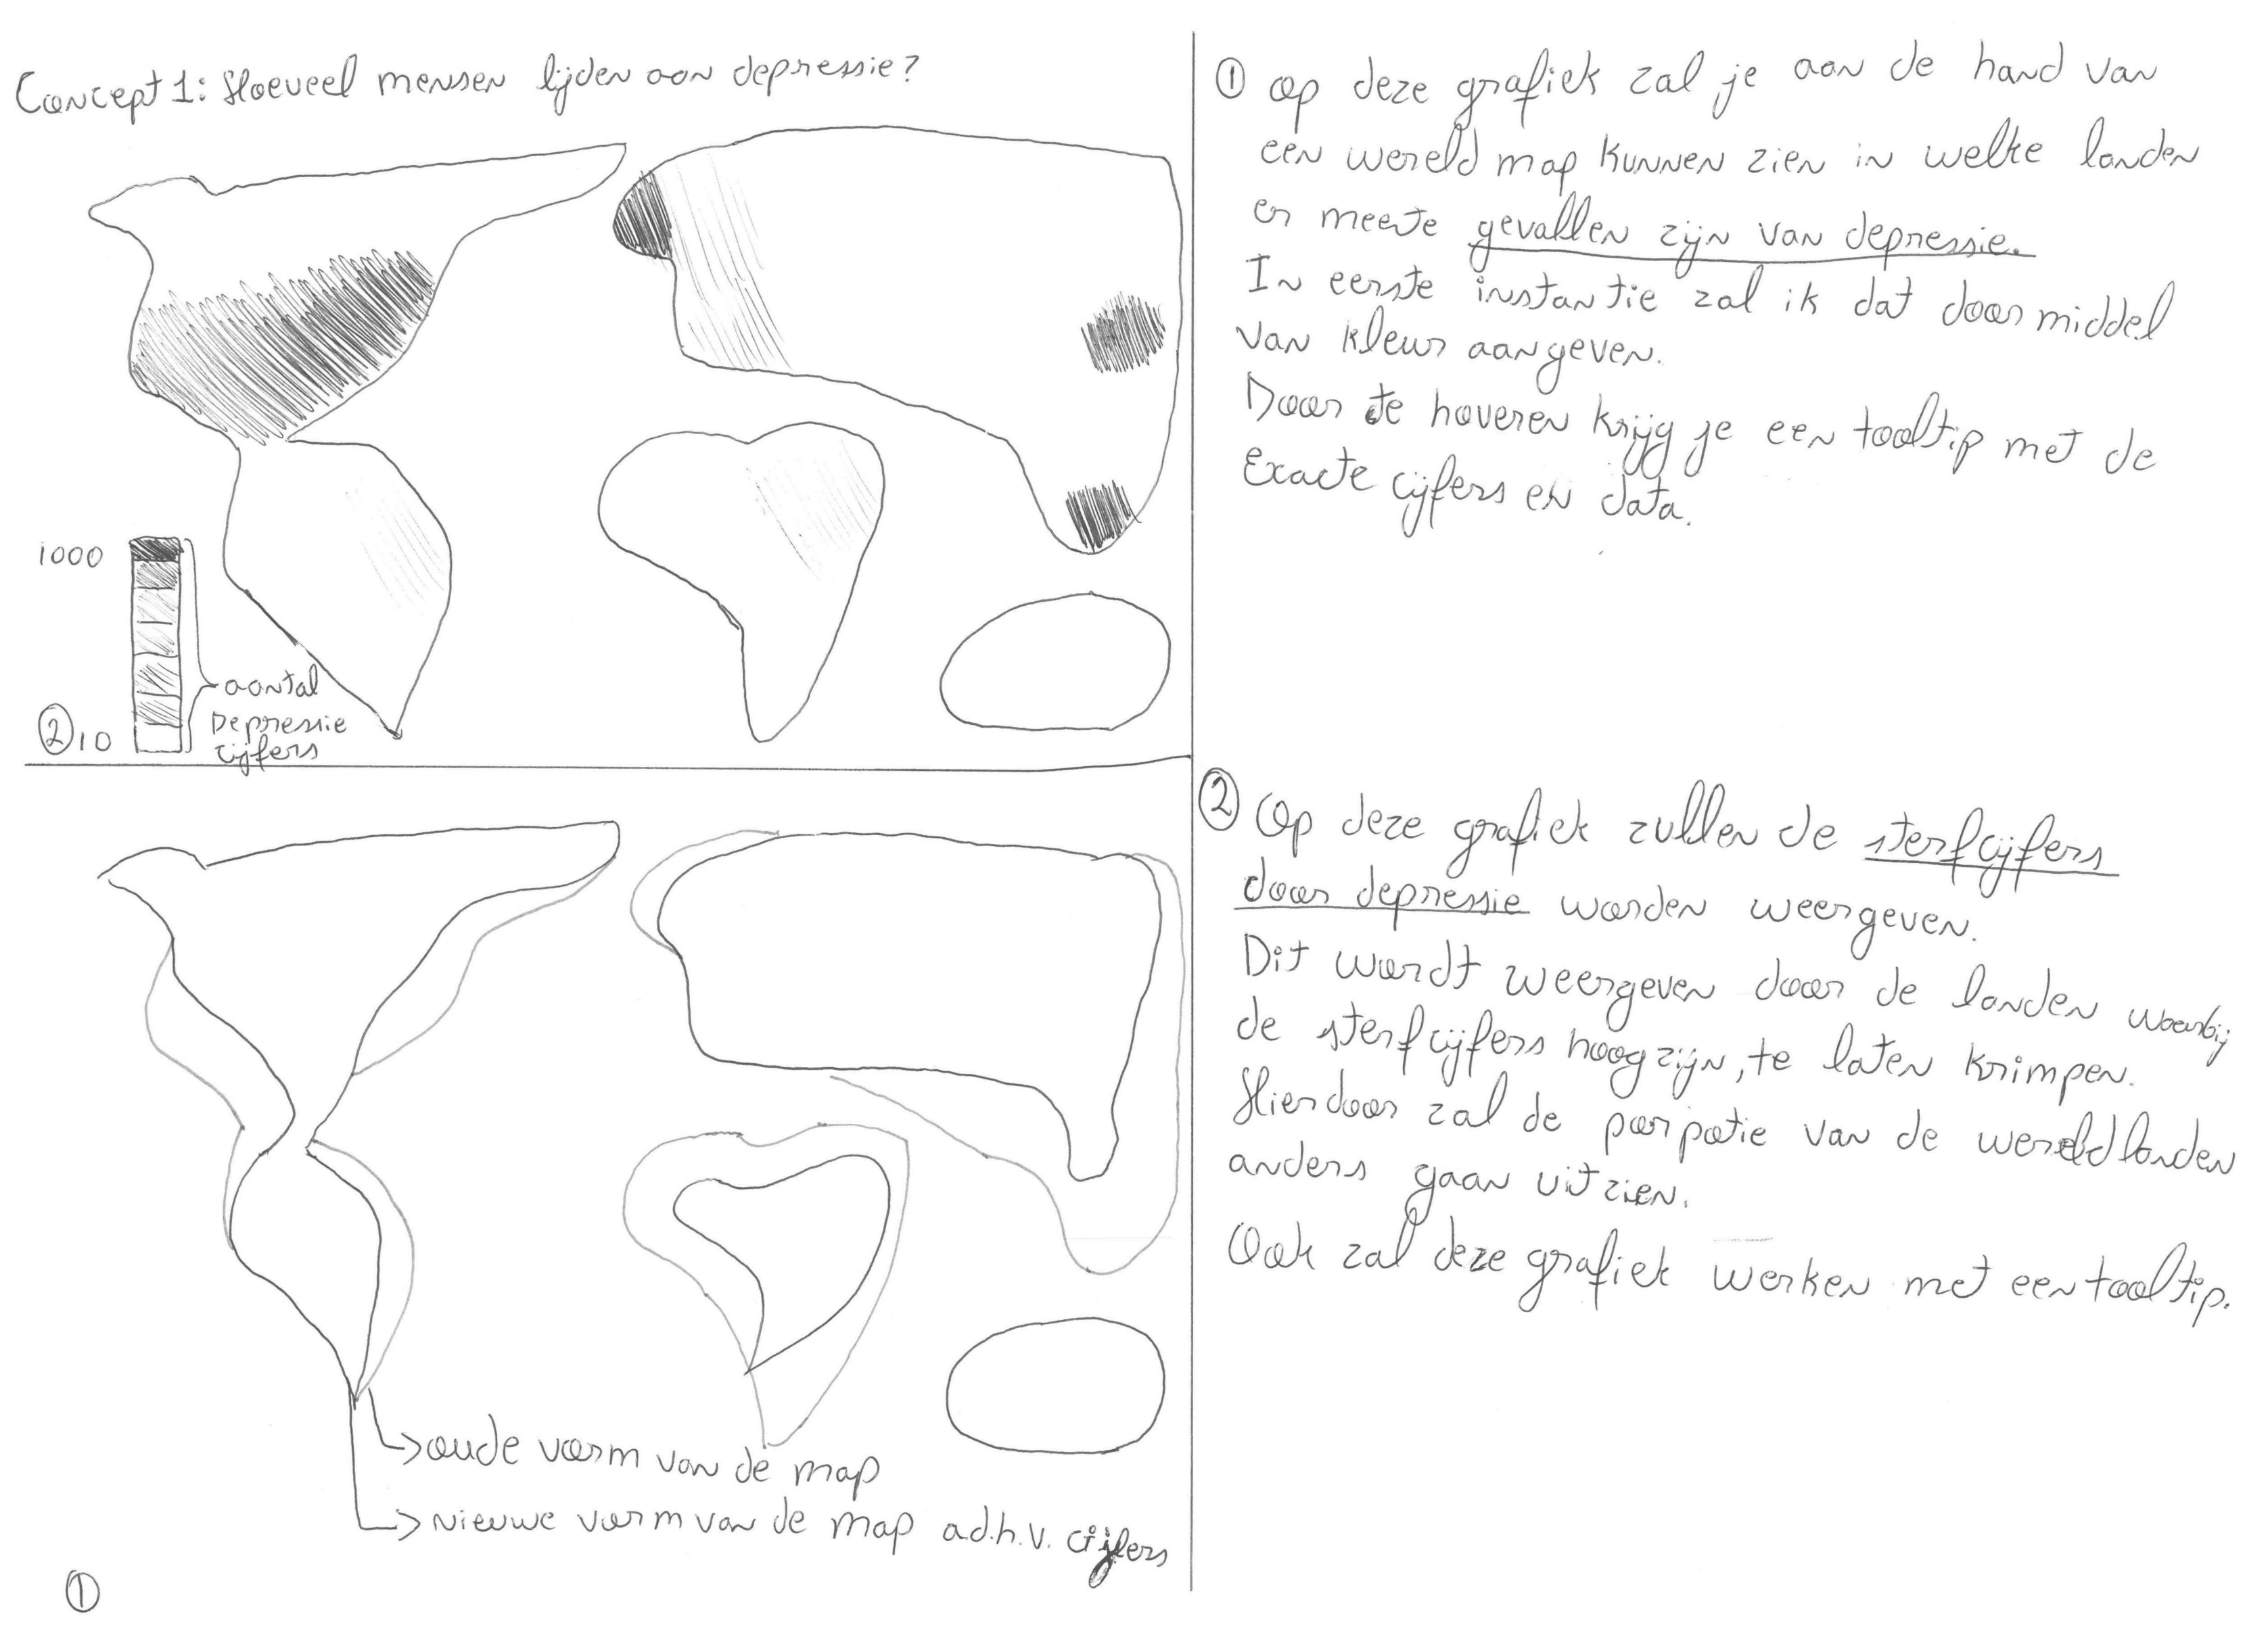 Concept 1: Hoeveel mensen lijden aan depressie?
1000
aantal
Depressie
cijfers
② 10
① Op deze grafiek zal je aan de hand van
een wereld map kunnen zien in welke landen
er meeste gevallen zijn van depressie.
In eerste instantie zal ik dat door middel
van kleur aangeven.
Door te hoveren krijg je een tooltip met de
Exacte cijfers en data.
oude vorm van de map
nieuwe vorm van de map a.d.h.v. cijfers
①
② Op deze grafiek zullen de sterfcijfers
door depressie worden weergeven.
Dit wordt weergeven door de landen waarbij
de sterfcijfers hoog zijn, te laten krimpen.
Hierdoor zal de van de wereldlanden
anders gaan uitzien.
Ook zal deze grafiek werken met een tooltip.